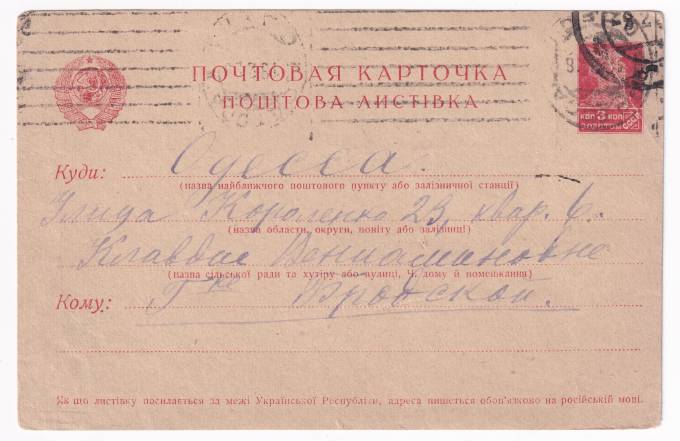 ПОЧТОВАЯ КАРТОЧКА
ПОШТОВА ЛИСТІВКА
КОП 3 КОП
ЗОЛОТОМ СССР
Куди: Одесса.
(назва найближчого поштового пункту або залізничної станції)
Улица Короленко 23, квар. 6.
(назва области, округи, повіту або залізниці)
Клавдие Вениаминовне
(назва сільської ради та хутіру або вулиці, Ч. дому й помешкання)
Кому: Г-же Бродской.
Як що листівку посилається за межі Української Республіки, адреса пишеться обов'язково на російській мові.